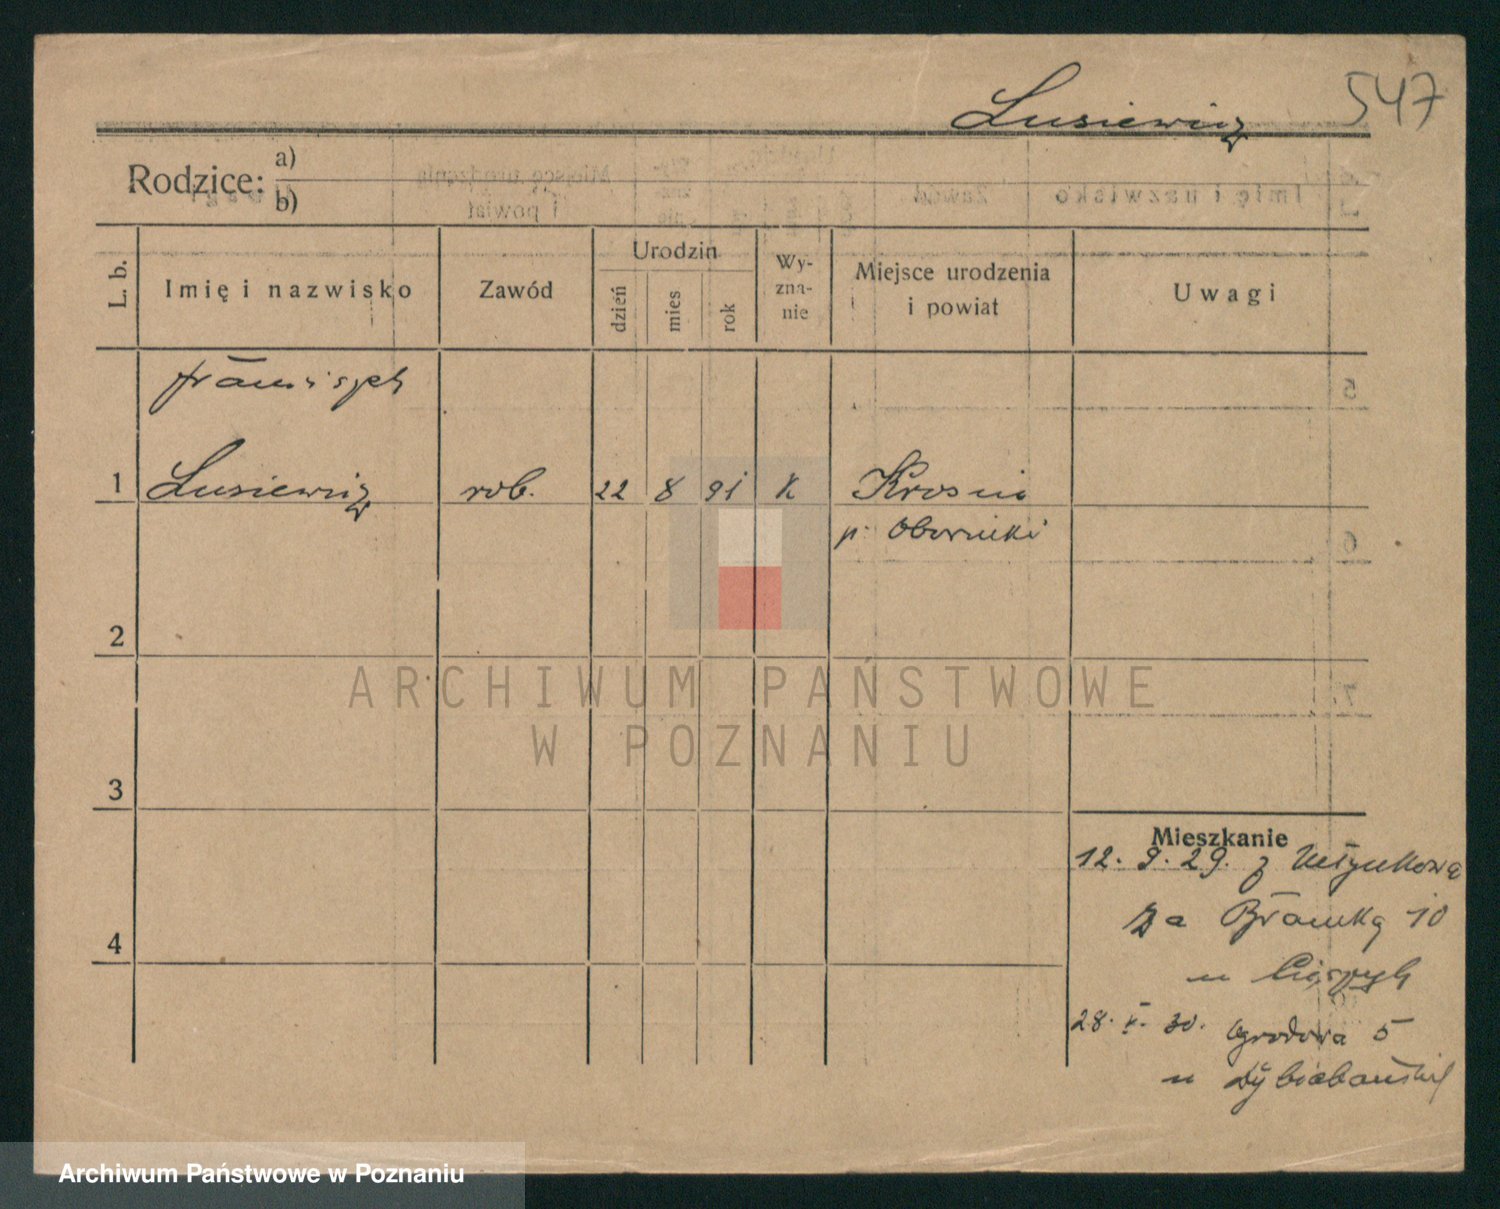 Lusiewicz 547
Rodzice: a)
b)
L. b.
Imię i nazwisko
Zawód
Urodzin
dzień
mies
rok
Wy-
zna-
nie
Miejsce urodzenia
i powiat
Uwagi
Franciszek
1 Lusiewicz rob. 22 8 91 K Krosin
p. Oborniki
2
3
4
Mieszkanie
12. 9. 29. z
Za Bramką 10
u
28. V. 30. Ogrodowa 5
u
ARCHIWUM PAŃSTWOWE
W POZNANIU
Archiwum Państwowe w Poznaniu